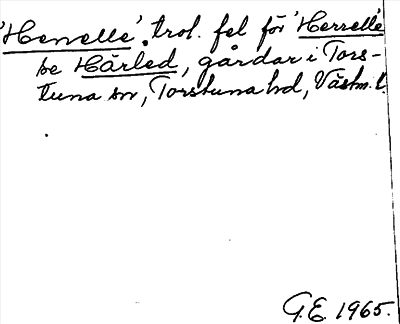 'Henelle'. trol. fel för 'Herrelle'
se Härled, gårdar i Tors-
tuna sn, Torstuna hd, Västm. l.
G.E. 1965.